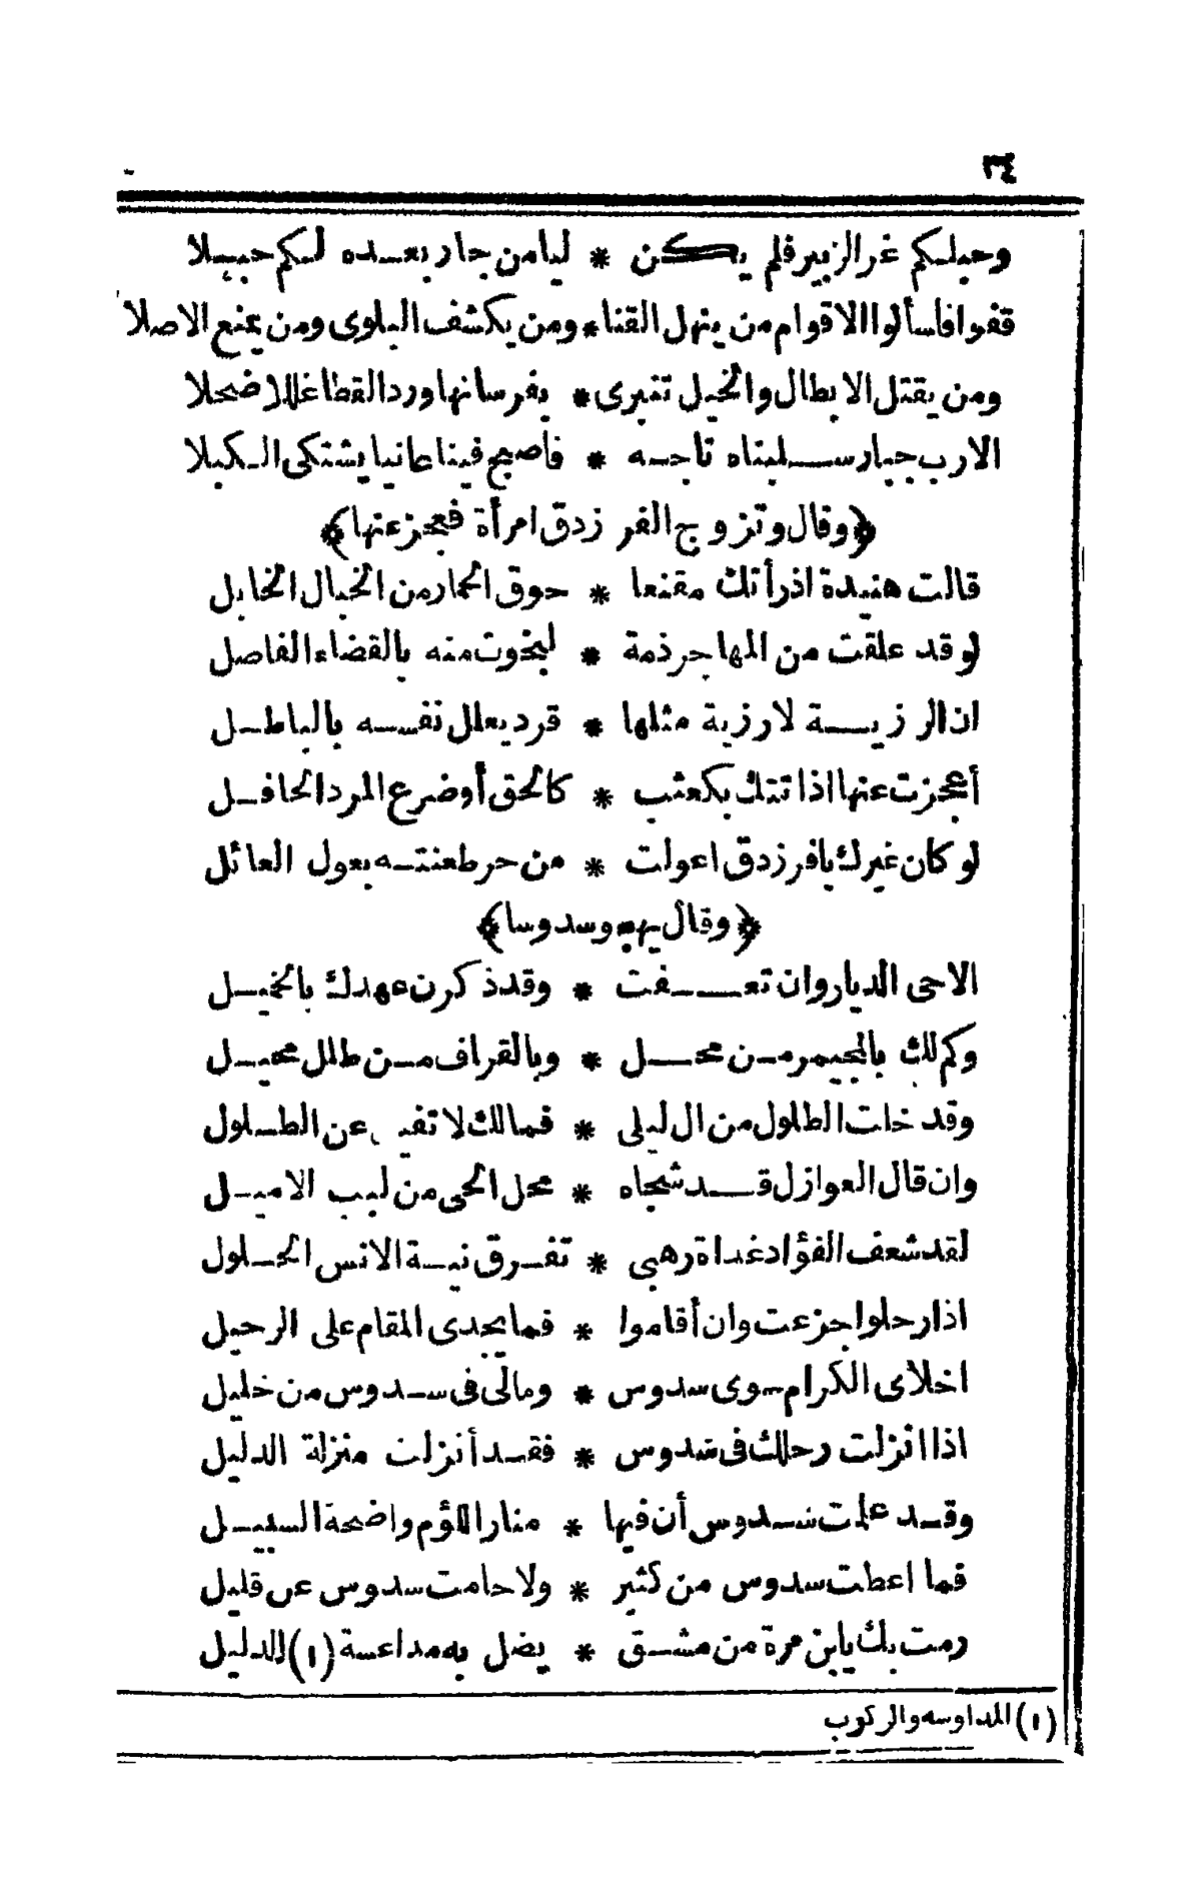 ٣٤
وحبلكم غر الزبير فلم يكن * ليا من جار بعده لكم حبلا
قفوا فاسألوا الاقوام من ينهل القناء ومن يكشف البلوى ومن يمنع الاصلا
ومن يقتل الابطال والخيل تنبرى * بفرسانها ورد القطا غللا ضحلا
الا رب جبار سلبناه تاجه * فأصبح فينا عانيا يشتكى الكبلا
﴿وقال وتزوج الفرزدق امرأة فعجز عنها﴾
قالت هنيدة اذ رأتك مقنعا * حوق الحمار من الخبال الخابل
لو قد علقت من المهاجر ذمة * لنجوت منه بالقضاء الفاصل
ان الرزية لا رزية مثلها * قرد يعلل نفسه بالباطل
أعجزت عنها اذ اتتك بكعثب * كالحق أو ضرع المرد الحافل
لو كان غيرك يا فرزدق اعولت * من حر طعنته بعول العائل
﴿وقال يهجو سدوسا﴾
الا حى الديار وان تعفت * وقد ذكرن عهدك بالخيل
وكم لك بالمجيمر من محل * وبالقراف من طلل محيل
وقد خلت الطلول من ال ليلى * فمالك لا تفيق عن الطلول
وان قال العوازل قد شجاه * محل الحى من لبب الاميل
لقد شعف الفؤاد غداة رهبى * تفرق نية الانس الحلول
اذا رحلوا جزعت وان أقاموا * فما يجدى المقام على الرحيل
اخلاى الكرام سوى سدوس * ومالى فى سدوس من خليل
اذا انزلت رحلك فى سدوس * فقد أنزلت منزلة الدليل
وقد علمت سدوس أن فيها * منار اللؤم واضحة السبيل
فما اعطت سدوس من كثير * ولا حامت سدوس عن قليل
رمت بك يابن مرة من مشق * يضل به مداعسة (١) الدليل
(١) المداوسه والركوب